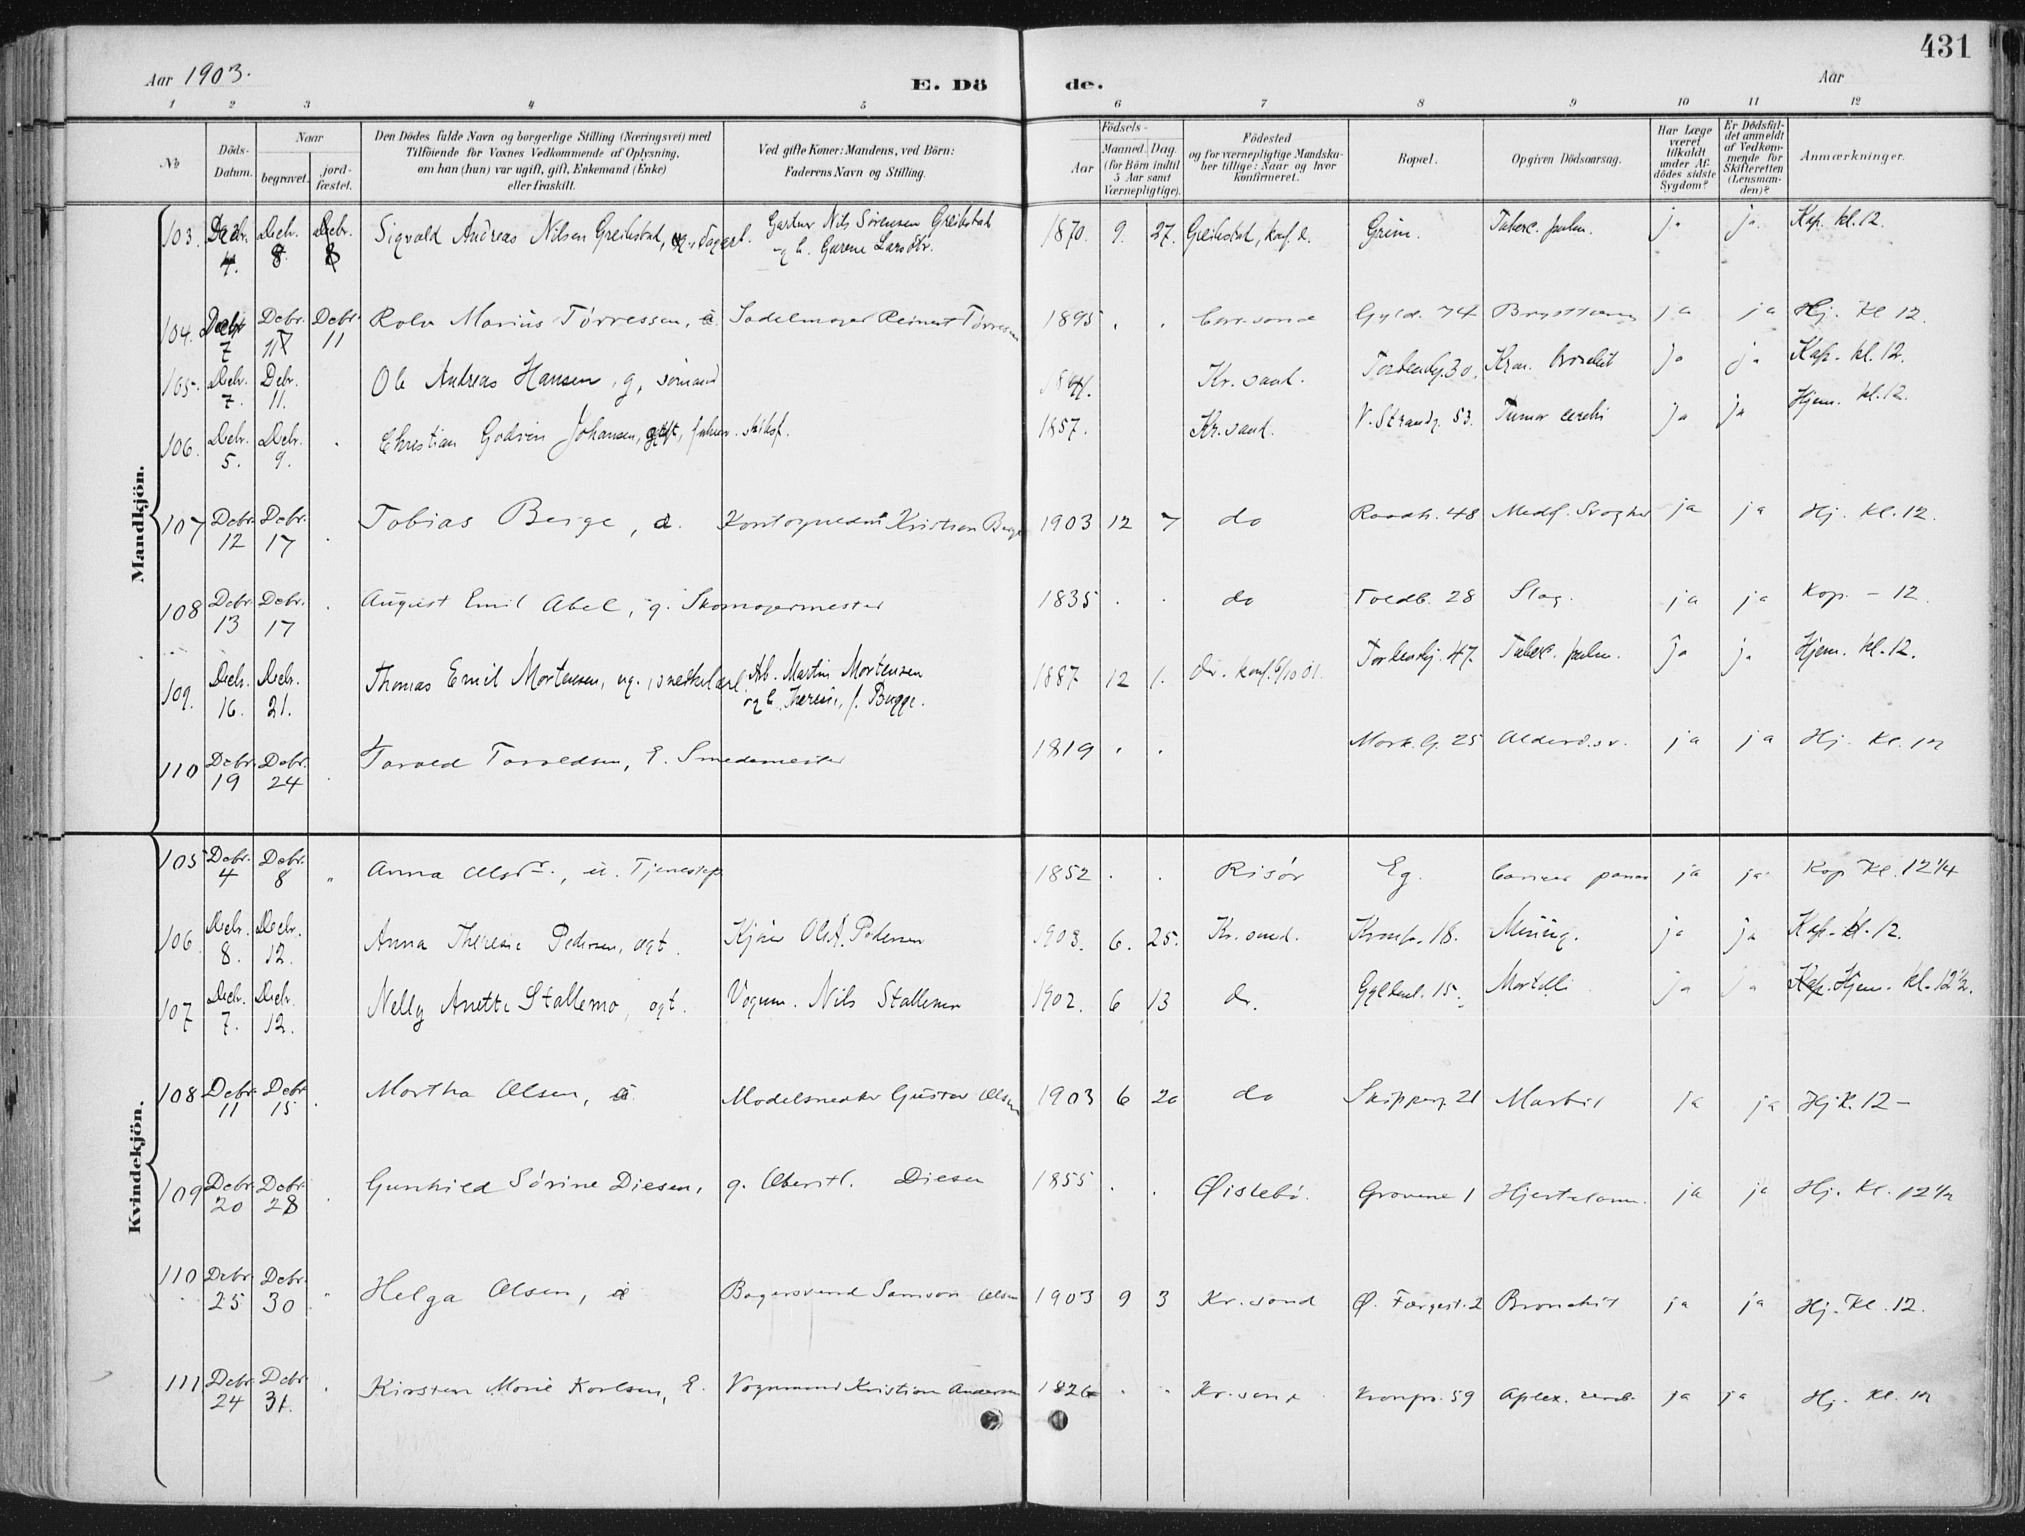 431
Aar 1903.
E. Dö de.
Aar
1 2 3 4 5 6 7 8 9 10 11 12
No
Döds-Datum.
Naar
begravet.
jord-fæstet.
Den Dödes fulde Navn og borgerlige Stilling (Næringsvei) med
Tilföiende for Voxnes Vedkommende af Oplysning,
om han (hun) var ugift, gift, Enkemand (Enke)
eller fraskilt.
Ved gifte Koner: Mandens, ved Börn:
Faderens Navn og Stilling.
Födsels-
Aar
Maaned. Dag.
(for Börn indtil
5 Aar samt
Værnepligtige).
Födested
og for værnepligtige Mandska-
ber tillige: Naar og hvor
konfirmeret.
Bopæl.
Opgiven Dödsaarsag.
Har Læge
været
tilkaldt
under Af-
dödes sidste
Sygdom?
Er Dödsfal-
det anmeldt
af Vedkom-
mende for
Skifteretten
(Lensman-
den)?
Anmærkninger.
Mandkjön.
103. Decbr. 4. Decbr. 8. Decbr. 8 Sigvald Andreas Nilsen Greibstad, Gartner Nils Sörensen Greibstad 1870. 9. 27. Greibstad, konf. Grim. Taberc. pulm. ja ja. Kap. kl. 12.
og h. Garene Larsdtr.
104. Decbr. 7 Debr. 11 Debr. 11 Rolv Marius Tørressen, Sadelmager Reinert Tørresen 1895 . . Gyld. 74 ja ja Hj. Kl 12.
105. Decbr. 7. Debr. 11. Ole Andreas Hansen, g, sömand Kr.sand. 30. ja ja Kap. kl. 12.
106. Decbr. 5. Decbr. 9. . Christian Godvin Johansen, gift, 1857. Kr.sand. V. Strandg. 53. Tumor cerebri ja ja Hjem. kl. 12.
107 Debr. 12 Debr. 17 . Tobias Berge, Kristian Berge 1903 12 7 do Raadh. 48 Medf. ja ja Hj. Kl. 12.
108 Debr. 13 Debr. 17 . August Emil Abel, g. Skomagermester 1835 . . do Toldb. 28 Slag. ja ja Kap. - 12.
109. Decbr. 16. Decbr. 21. Thomas Emil Mortensen, ug., Arb. Martin Mortensen 1887 12 1. do. konf. Tordenskj. 47. Taberc. pulm. ja ja Hjem. kl. 12.
og h. Therese, f. Bugge.
110 Debr. 19 Debr. 24 . Torvald Torvaldsen, E. Smedemester 1819 . . Mark. G. 25 ja ja Hj. Kl. 12
Kvindekjön.
105 Debr. 4 Debr. 8 " Anna Olsdtr., u. Tjenestep. 1852 . . Risør Eg. Cancer ja ja Kap Kl. 12 1/4
106. Decbr. 8. Decbr. 12. Anna Therese Pedersen, ægt. Ole A. Pedersen 1903. 6. 25. Kr.sand. Kronpr. 18. ja ja Kap. kl. 12.
107 Decbr. 7. Decbr. 12. Nelly Anette Stallemo, ægt. Vognm. Nils Stallemo 1902. 6 13 do. Gyldenl. 15. Morbilli ja ja Kap. Hjem. kl. 12 1/2.
108 Debr. 11 Debr. 15 . Martha Olsen, Modelsnedker Gustav Olsen 1903 6 20 do Skipperg. 21 ja ja Hj K. 12 -
109 Debr. 20 Debr. 28 . Gunhild Sørine Diesen, g. Oberstl. Diesen 1855 . . Øislebö. Grovene 1 Hjertelam. ja ja Hj. Kl. 12 1/2
110 Debr. 25 Debr. 30 " Helga Olsen, Bagersvend Samson Olsen 1903 9 3 Kr.sand Ø. 2 Bronchit ja ja Hj. Kl. 12.
111 Debr. 24 Debr. 31. . Kirsten Marie Karlsen, E. Vognmand Kristian Andersen 1826 . . Kr.sand Kronpr. 59 Aplex. cereb. ja ja Hj. Kl. 12